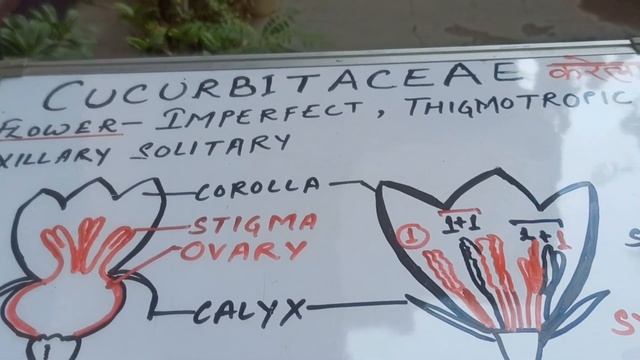 CUCURBITACEAE
FLOWER- IMPERFECT, THIGMOTROPIC
XILLARY SOLITARY
COROLLA
STIGMA
OVARY
CALYX
1 1+1 1+1